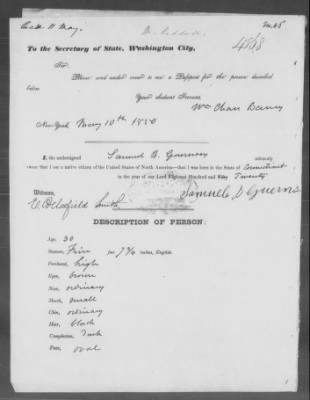 Recd 11 May.
4568
To the Secretary of State, Washington City,
Sir
Please send under cover to me a Passport for the person described
below
Your obedient Servant,
Wm Chas
New-York May 10th 1850
I, the undersigned Samuel B. Guernsey solemnly
swear that I am a native citizen of the United States of North America—that I was born in the State of Connecticut
in the year of our Lord Eighteen Hundred and Twenty
Witness,
Smith
Samuel B Guernsey
DESCRIPTION OF PERSON:
Age, 30
Stature, Five feet 7¾ inches, English.
Forehead, high
Eyes, brown
Nose, ordinary
Mouth, small
Chin, ordinary
Hair, black
Complexion, Dark
Face, oval